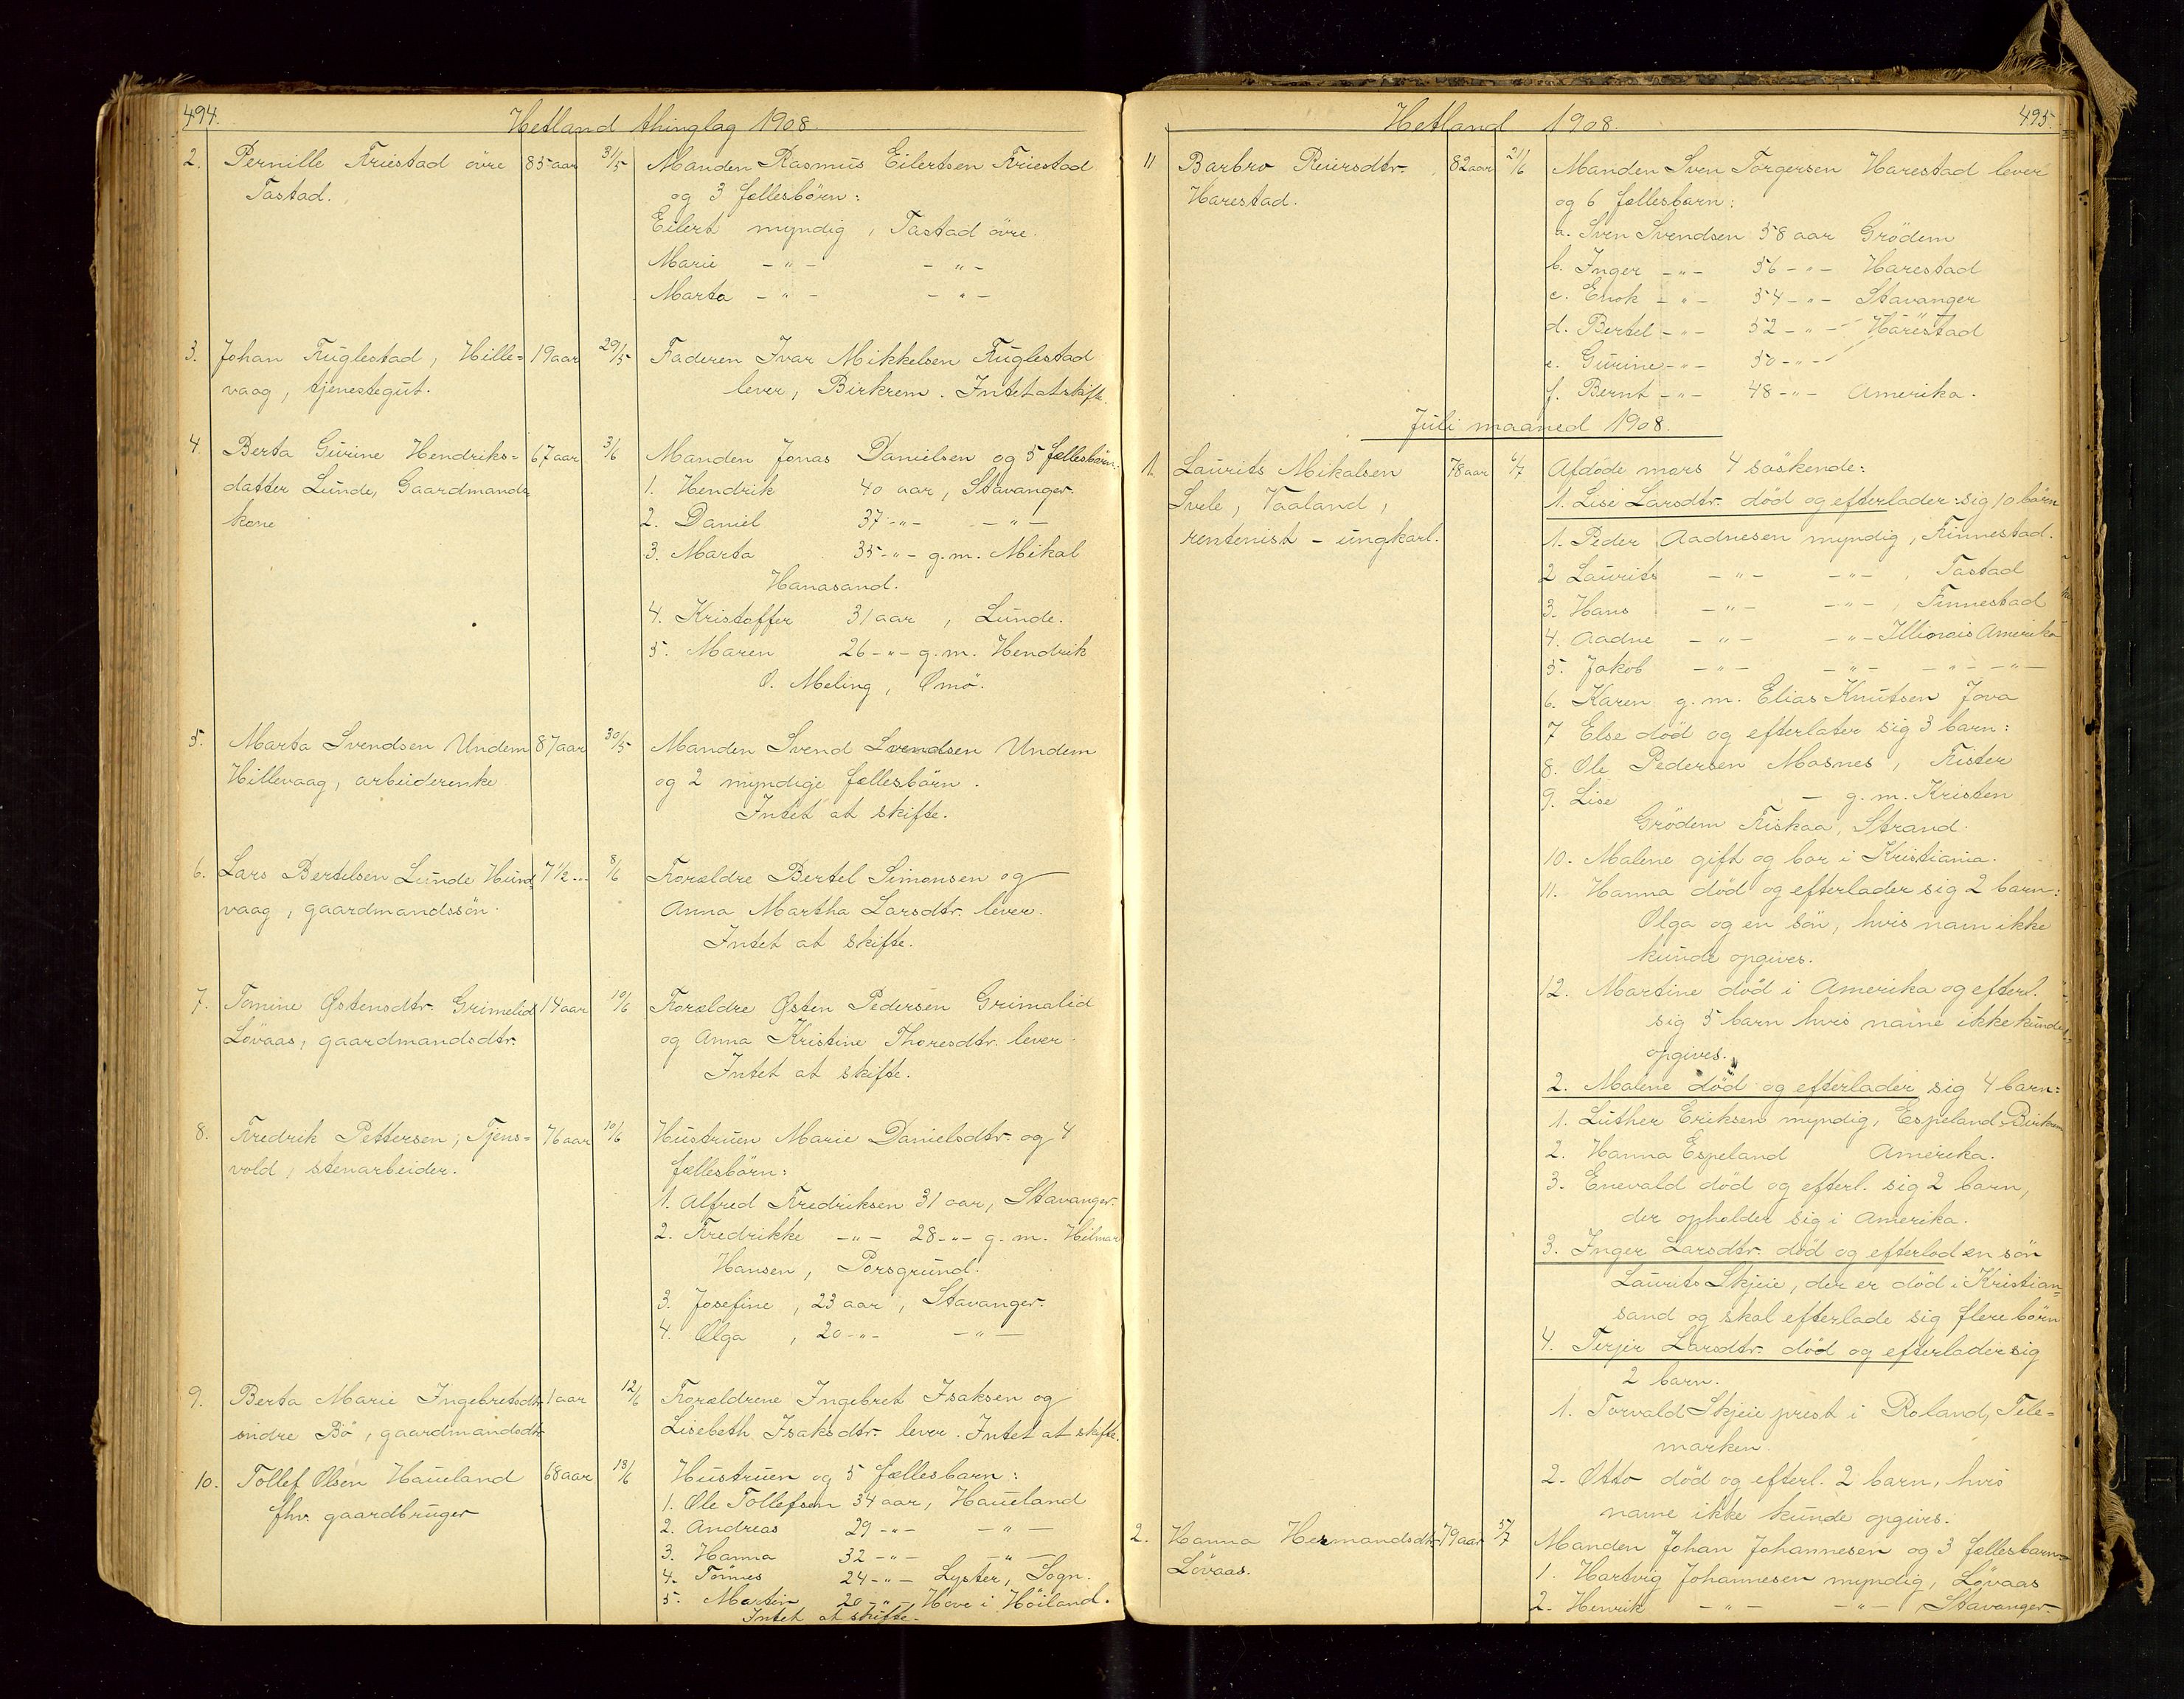 494. Hetland thinglag 1908.
2. Pernille Friestad övre 85 aar 31/5 Manden Rasmus Eilertsen Friestad
Tastad. og 3 fællesbörn:
Eilert myndig, Tastad övre.
Marie -"- -"-
Marta -"- -"-
3. Johan Fuglestad, Hille= 19 aar 29/5 Faderen Ivar Mikkelsen Fuglestad
vaag, tjenestegut. lever, Birkrem. Intet at skifte.
4. Berta Gurine Hendriks= 67 aar 3/6 Manden Jonas Danielsen og 5 fællesbörn:
datter Lunde, Gaardmands 1. Hendrik 40 aar, Stavanger.
kone 2. Daniel 37 -"- -"-
3. Marta 35 -"- g.m. Mikal
Hanasand.
4. Kristoffer 31 aar, Lunde.
5. Maren 26 -"- g.m. Hendrik
O. Meling, Ømö.
5. Marta Svendsen Undem 87 aar 30/5 Manden Svend Svendsen Undem
Hillevaag, arbeiderenke og 2 myndige fællesbörn.
Intet at skifte.
6. Lars Bertelsen Lunde Hund 7 1/2 ... 8/6 Forældre Bertel Simonsen og
vaag, gaardmandssön. Anna Martha Larsdtr. lever.
Intet at skifte.
7. Tomine Østensdtr. Grimelid 14 aar 10/6 Forældre Østen Pedersen Grimalid
Lövaas, gaardmandsdtr. og Anna Kristine Thoresdtr. lever.
Intet at skifte.
8. Fredrik Pettersen, Tjens= 76 aar 10/6 Hustruen Marie Danielsdtr. og 4
vold, stenarbeider. fællesbörn:
1. Alfred Fredriksen 31 aar, Stavanger.
2. Fredrikke -"- 28 -"- g.m. Hilmar
Hansen, Porsgrund.
3. Josefine, 23 aar, Stavanger.
4. Olga, 20 -"- -"-
9. Berta Marie Ingebretsdtr. 1 aar 12/6 Forældrene Ingebret Isaksen og
indre Bö, gaardmandsdtr. Lisebeth Isaksdtr. lever. Intet at skifte.
10. Tollef Olsen Haueland 68 aar 18/6 Hustruen og 5 fællesbarn:
fhv. gaardbruger 1. Ole Tollefsen 34 aar, Haueland
2. Andreas 29 -"- -"-
3. Hanna 32 -"- -"-
4. Tönnes 24 -"- Lyster, Sogn.
5. Martin 20 -"- Hove i Höiland.
Intet at skifte.
Hetland 1908. 495.
11 Barbro Reiersdtr. 82 aar 21/6 Manden Sven Torgersen Harestad lever
Harestad. og 6 fællesbarn:
a. Sven Svendsen 58 aar Grödem
b. Inger -"- 56 -"- Harestad
c. Enok -"- 54 -"- Stavanger
d. Bertel -"- 52 -"- Harestad
e. Gurine -"- 50 -"-
f. Bernt -"- 48 -"- Amerika.
Juli maaned 1908.
1. Laurits Mikalsen 78 aar 6/7 Afdöde mors 4 söskende:
Svele, Vaaland, 1. Lise Larsdtr. död og efterlader sig 10 börn
rentenist - ungkarl. 1. Peder Aadnesen myndig, Finnestad.
2 Laurits -"- -"-, Tastad
3. Hans -"- -"-, Finnestad
4. Aadne -"- -"- Illionois Amerika
5. Jakob -"- -"- -"- -"-
6. Karen g.m. Elias Knutsen Jova
7 Else död og efterlater sig 3 barn:
8. Ole Pedersen Mosnes, Fister
9. Lise - g.m. Kristen
Grödem Fiskaa, Strand.
10. Malene gift og bor i Kristiania.
11. Hanna död og efterlader sig 2 barn:
Olga og en sön, hvis navn ikke
kunde opgives.
12. Martine död i Amerika og efterl.
sig 5 barn hvis navne ikke kunde
opgives.
2. Malene död og efterlader sig 4 barn:
1. Luther Eriksen myndig, Espeland Birkrem
2. Hanna Espeland Amerika.
3. Enevald död og efterl. sig 2 barn,
der opholder sig i Amerika.
3. Inger Larsdtr. död og efterlod en sön
Laurits Skjeie, der er död i Kristian=
sand og skal efterlade sig flere börn
4. Terjer Larsdtr. död og efterlader sig
2 barn.
1. Torvald Skjeie prest i Roland, Tele=
marken.
2. Otto död og efterl. 2 barn, hvis
navne ikke kunde opgives.
2. Hanna Hermandsdtr. 79 aar 5/7 Manden Johan Johannesen og 3 fællesbarn
Lövaas. 1. Hartvig Johannesen myndig, Lövaas
2. Henrik -"- -"-, Stavanger.